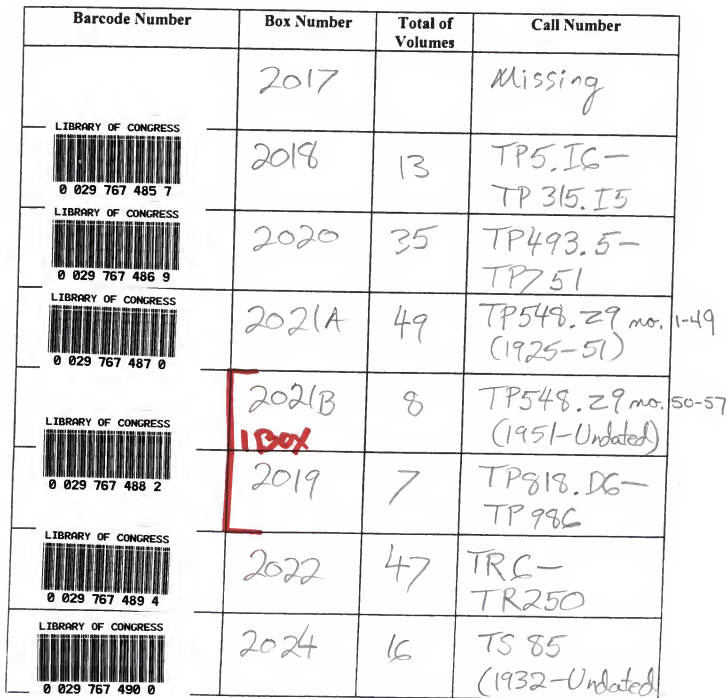 Barcode Number Box Number Total of Volumes Call Number
2017 Missing
LIBRARY OF CONGRESS
0 029 767 485 7
2018 13 TP5.I6-
TP 315.I5
LIBRARY OF CONGRESS
0 029 767 486 9
2020 35 TP493.5-
TP751
LIBRARY OF CONGRESS
0 029 767 487 0
2021A 49 TP548.Z9 no. 1-49
(1925-51)
2021B 8 TP548.Z9 no. 50-57
(1951-Undated)
1 BOX
LIBRARY OF CONGRESS
0 029 767 488 2
2019 7 TP818.D6-
TP 986
LIBRARY OF CONGRESS
0 029 767 489 4
2022 47 TR6-
TR250
LIBRARY OF CONGRESS
0 029 767 490 0
2024 16 TS 85
(1932-Undated